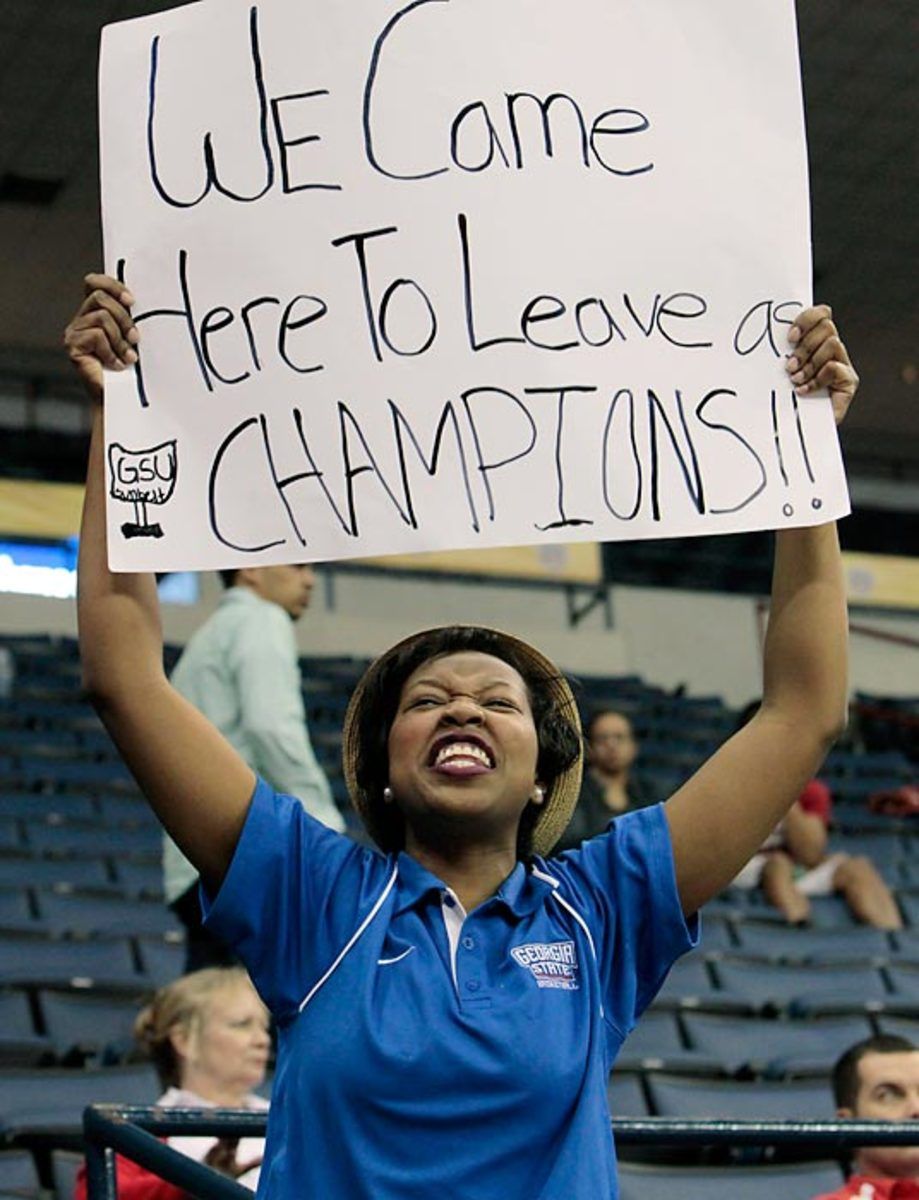 WE Came
Here To Leave as
CHAMPIONS!!
GSU
GEORGIA
STATE
BASKETBALL